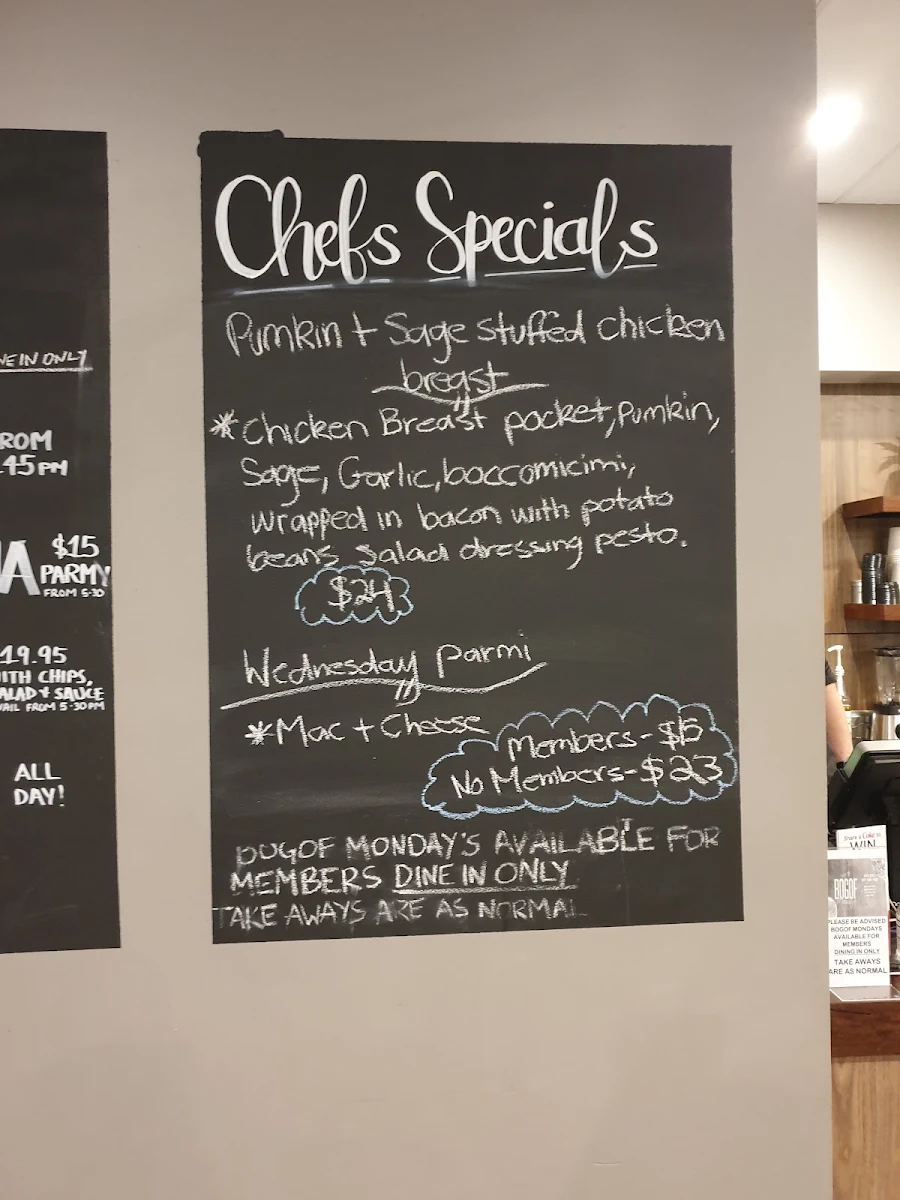 NE IN ONLY
ROM
.45 PM
A $15
PARMY
FROM 5-30
19.95
ITH CHIPS,
ALAD + SAUCE
VAIL FROM 5-30PM
ALL
DAY!
Chefs Specials
Pumkin + Sage stuffed chicken
breast
*Chicken Breast pocket, Pumkin,
Sage, Garlic, boccomicimi,
wrapped in bacon with potato
beans Salad dressing pesto.
$24
Wednesday Parmi
*Mac + Cheese
Members - $15
No Members - $23
BOGOF MONDAY'S AVAILABLE FOR
MEMBERS DINE IN ONLY
TAKE AWAYS ARE AS NORMAL
Share a Coke to
WIN
BOGOF
PLEASE BE ADVISED
BOGOF MONDAYS
AVAILABLE FOR
MEMBERS
DINING IN ONLY
TAKE AWAYS
ARE AS NORMAL